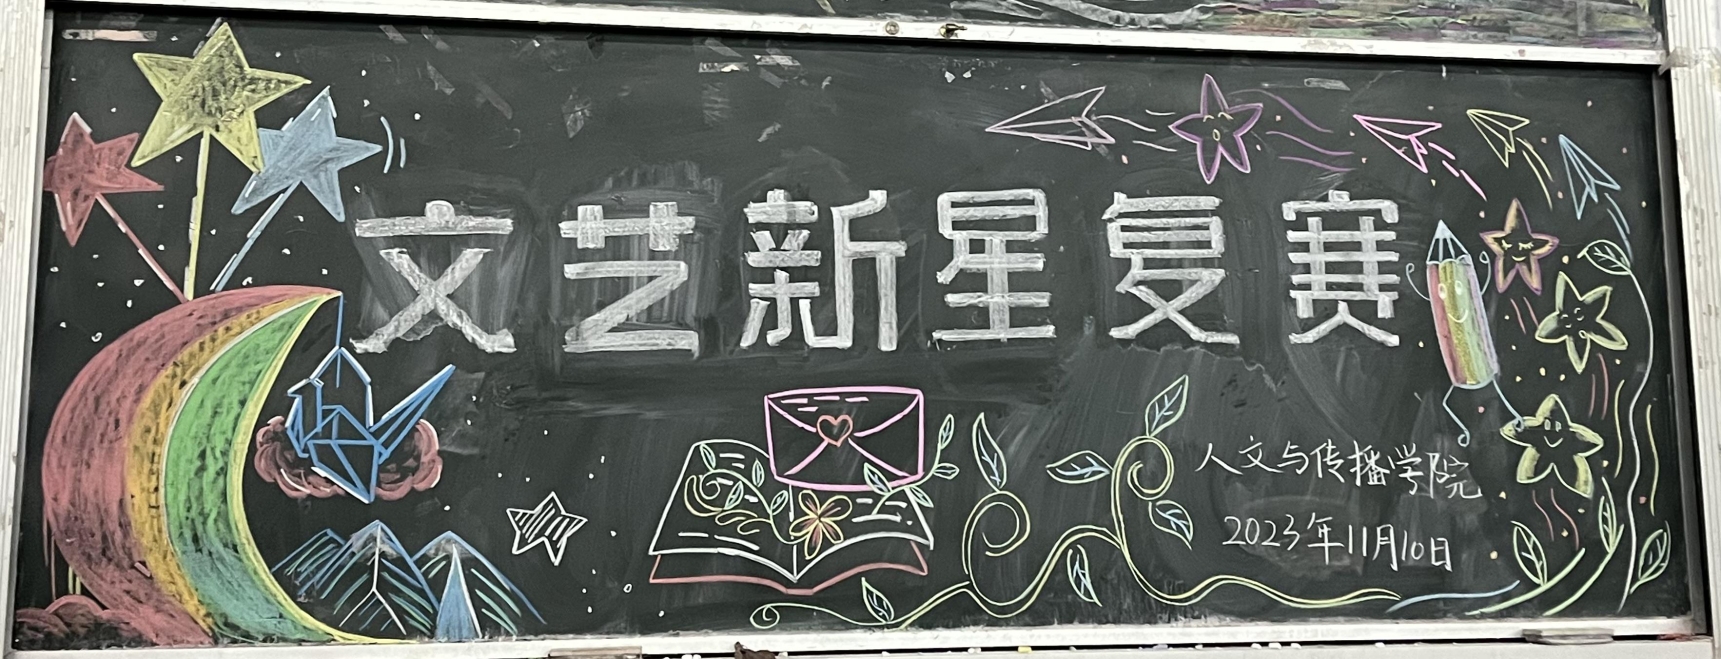 文艺新星复赛
人文与传播学院
2023年11月10日